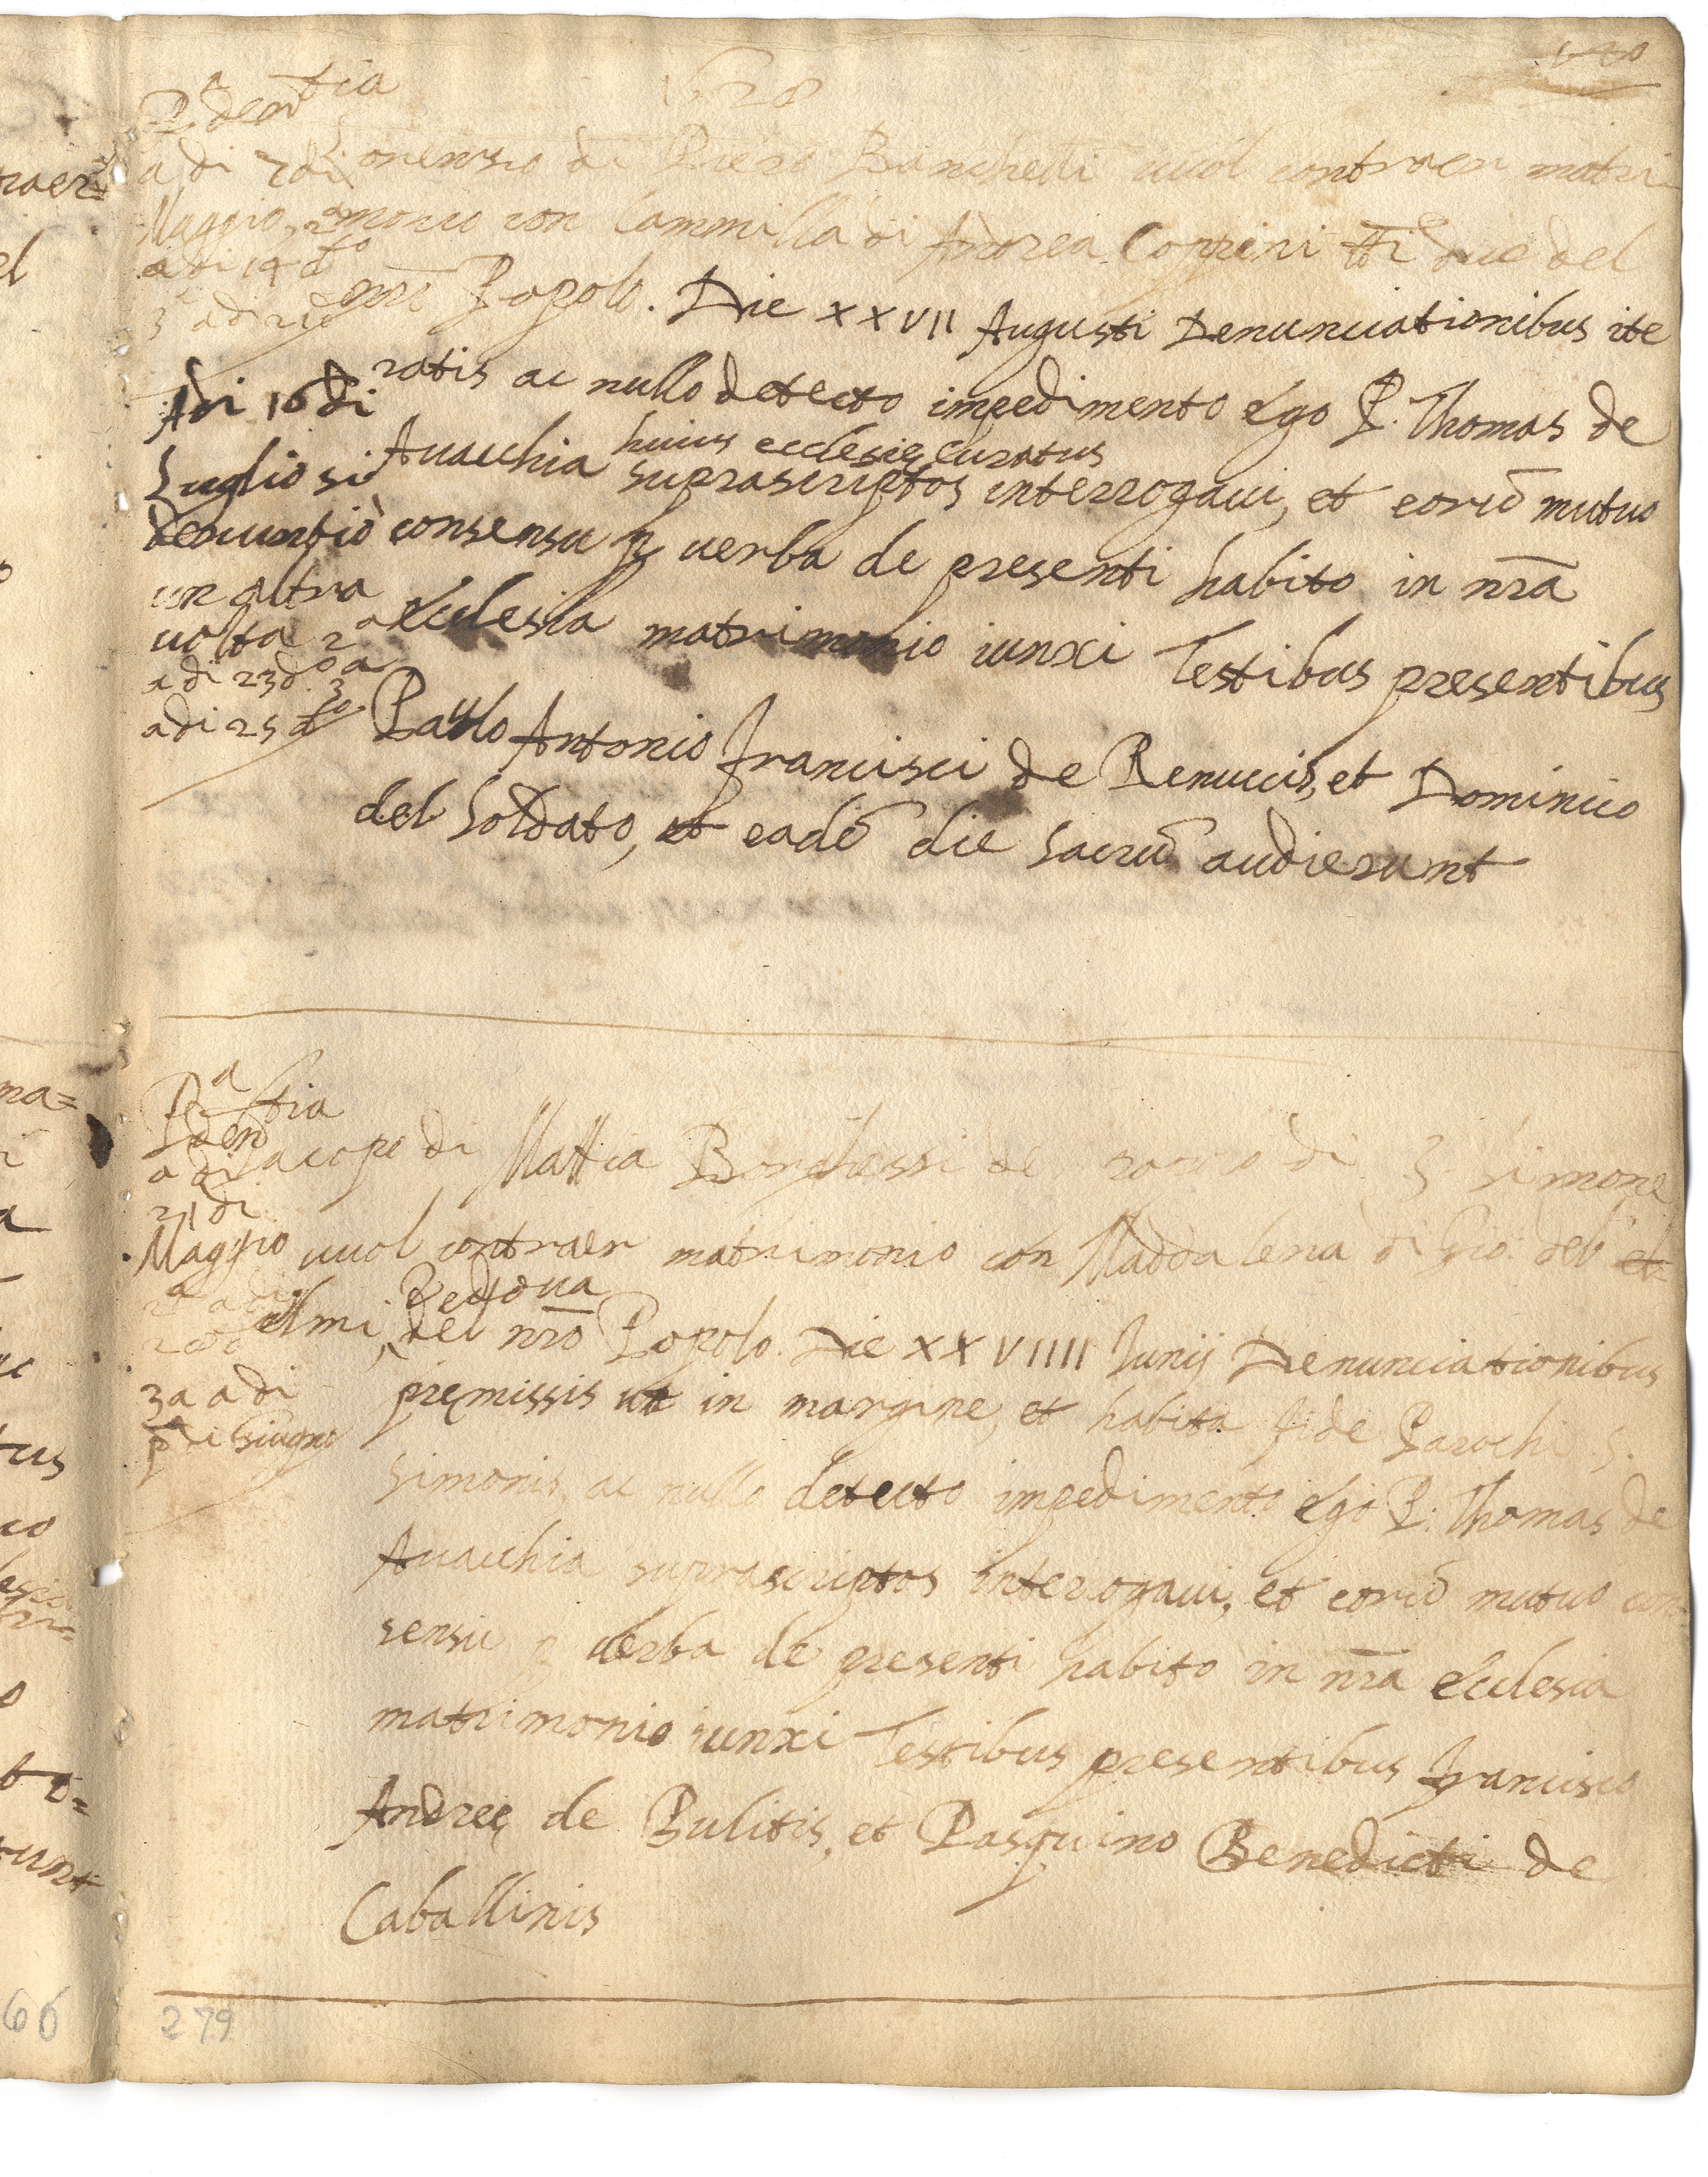 1628
P.a den tia
a di 7 di
Maggio, 2a
a di 14 do
3a a di 21 do
Lorenzio di Piero Banchetti vuol contraer matri-
monio con Cammilla di Andrea Coppini tti due del
nro Popolo. Die XXVII Augusti Denunciationibus ite
ratis ac nullo detecto impedimento ego P. Thomas de
Auacchia huius ecclesię curatus suprascriptos interrogaui, et eorū mutuo
consensu p uerba de presenti habito in nrā
ecclesia matrimonio iunxi Testibus presentibus
Paulo Antonio Francisci de Renuccis, et Dominico
del Soldato, et eadē die sacrū audierunt
Adi 16 di
Luglio si
denuntiò
un altra
uolta 2a
a di 23 do 3a
adi 25 do
P.a den tia
a di
21 di
Maggio
2a a di
3a a di
p di Giugno
Iacopo di Mattia Borghessi de di S Simone
vuol contraer matrimonio con Maddalena di Gio: del et
elmi, Vedoua del nrō Popolo. Die XXVIIII Iunij Denunciationibus
pręmissis ut in margine, et habita fide Parochi S.
Simonis, ac nullo detecto impedimento ego P. Thomas de
Auacchia suprascriptos interrogaui, et eorū mutuo con
sensu p uerba de presenti habito in nrā ecclesia
matrimonio iunxi Testibus presentibus Francisco
Andreę de Bulitis, et Pasquino Benedicti de
Caballinis
66
279